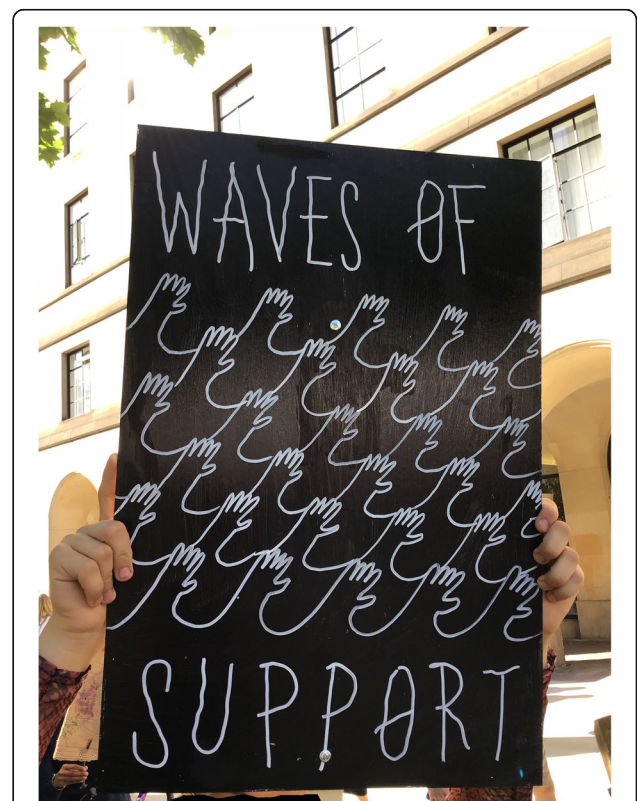 WAVES OF
SUPPORT